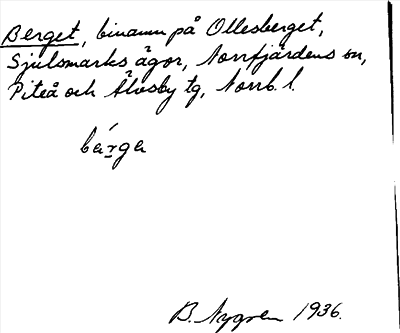 Berget, binamn på Ollesberget,
Sjulsmarks ägor, Norrfjärdens sn,
Piteå och Älvsby tg, Norrb. l.
bárga
B. Nygren 1936.